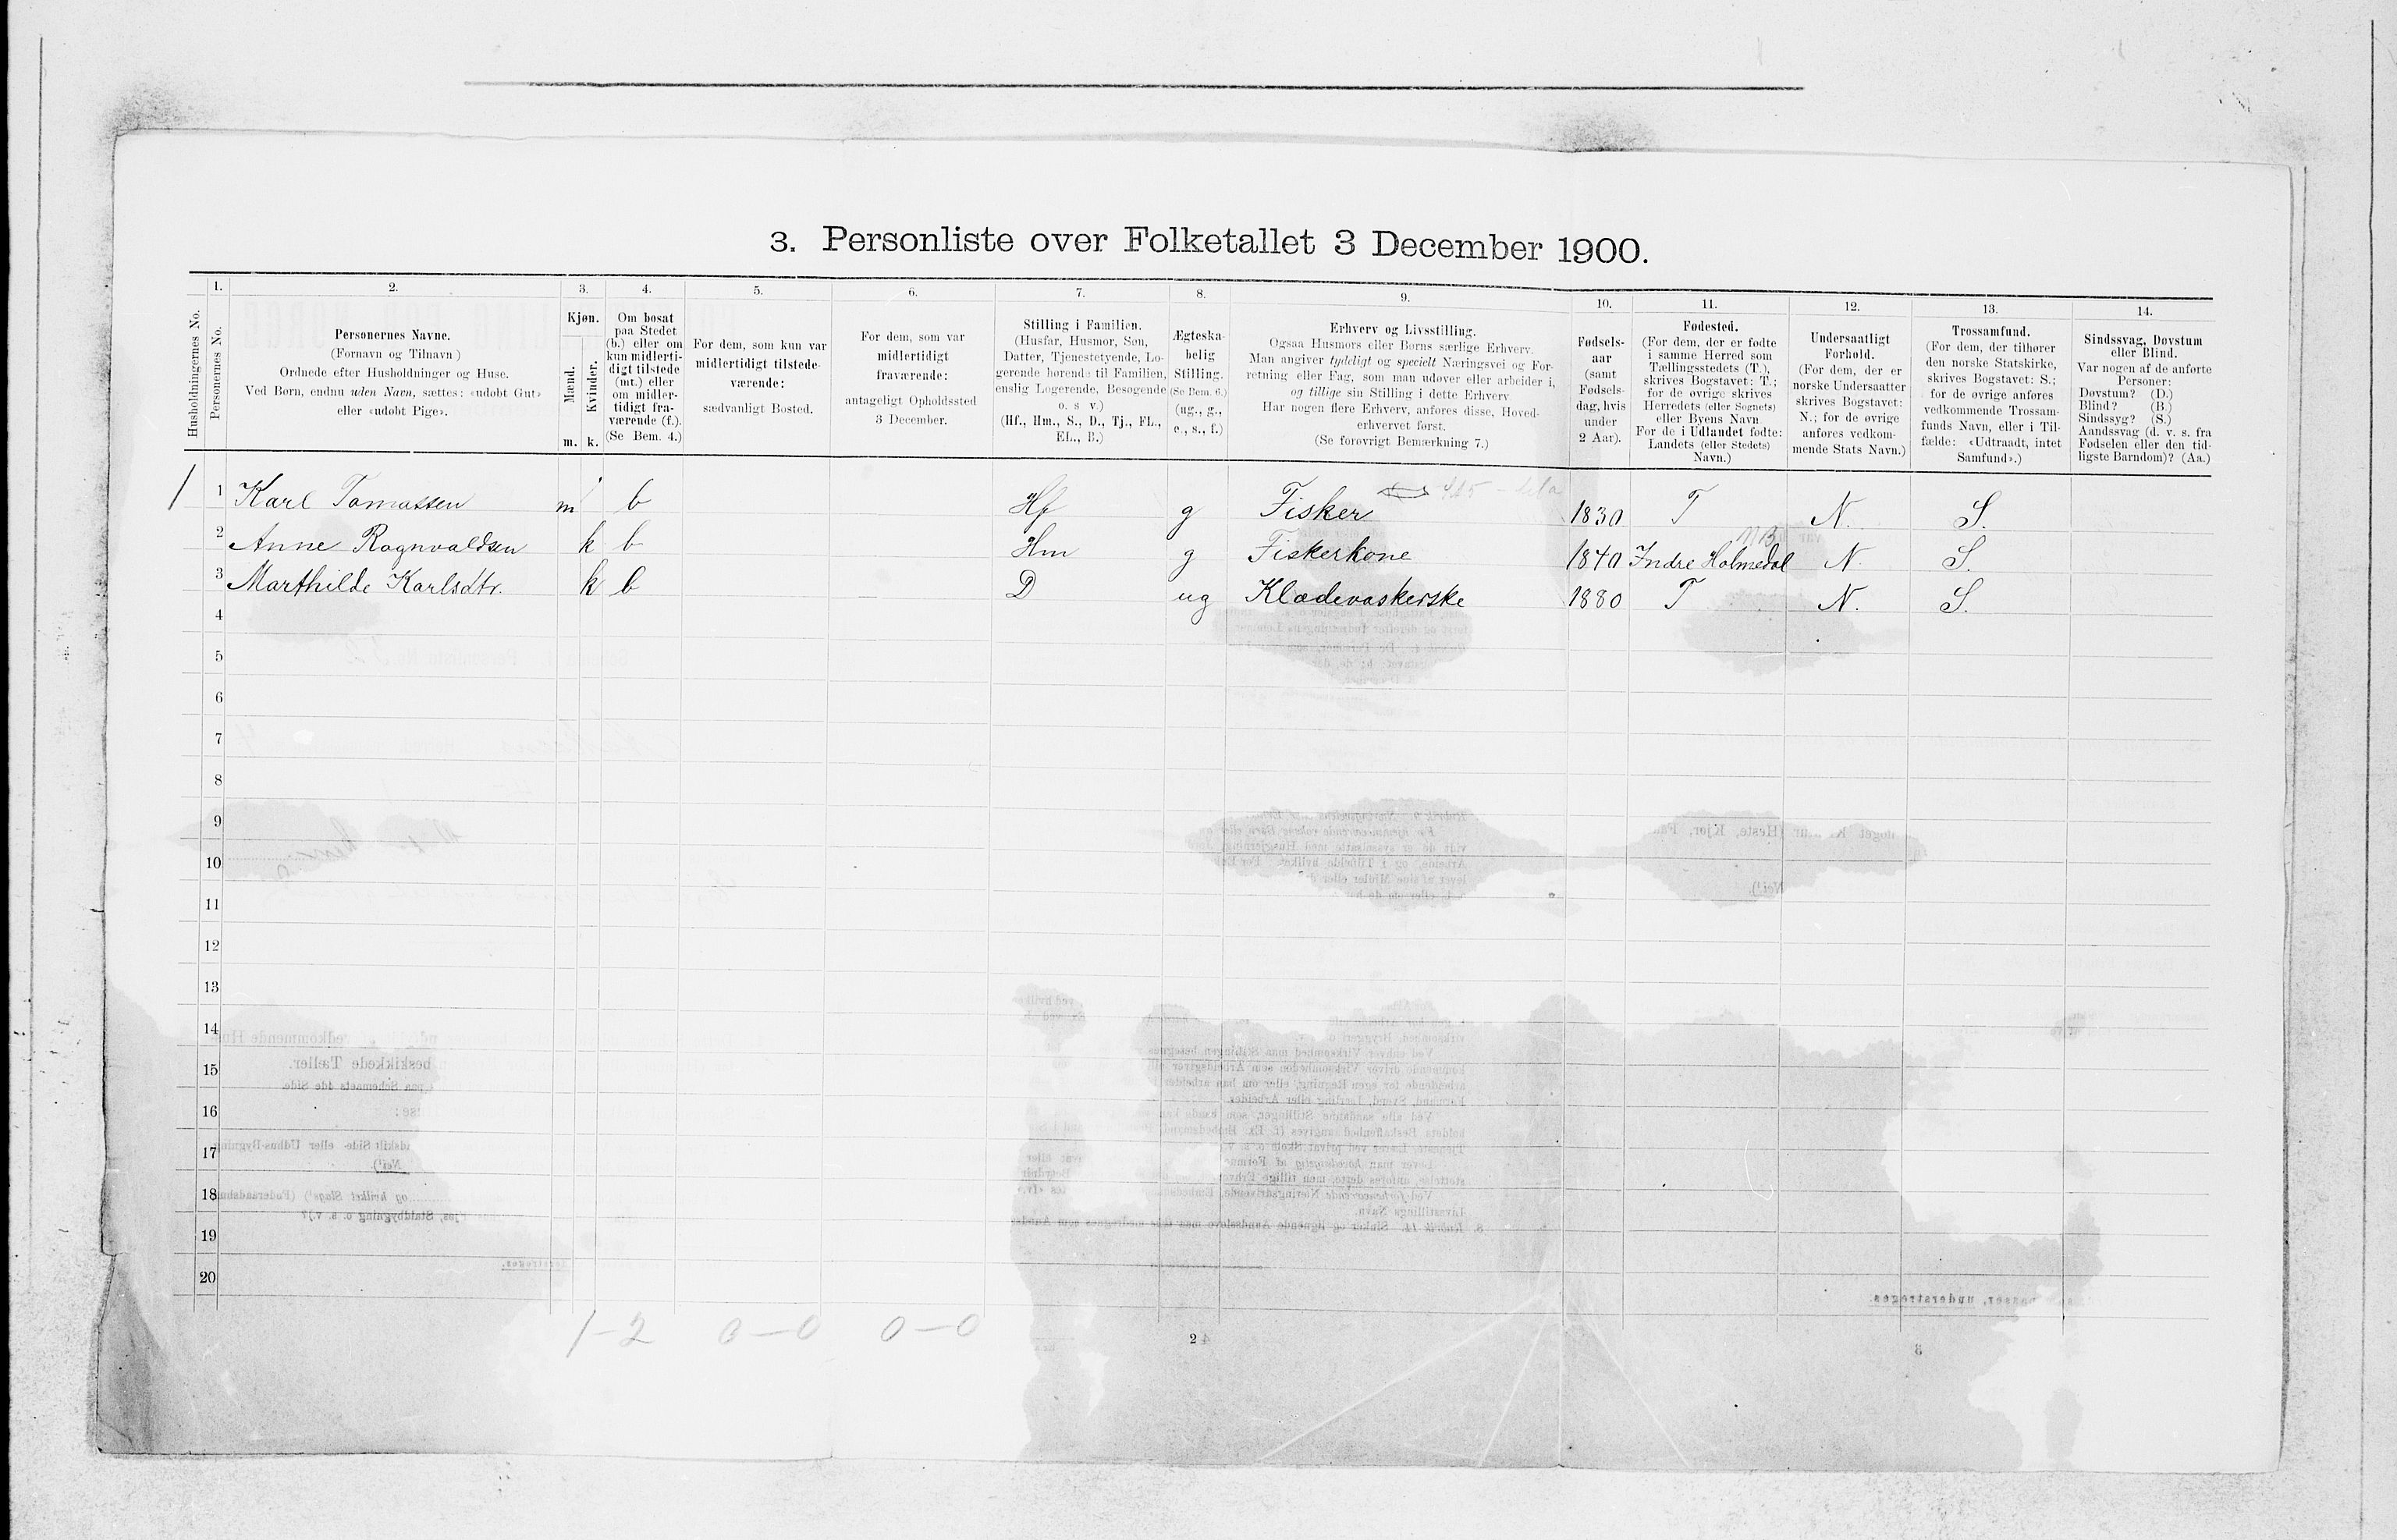 3. Personliste over Folketallet 3 December 1900.
Husholdningernes No.
1.
Personernes No.
2.
Personernes Navne.
(Fornavn og Tilnavn)
Ordnede efter Husholdninger og Huse.
Ved Børn, endnu uden Navn, sættes: «udøbt Gut»
eller «udøbt Pige».
3.
Kjøn.
Mænd.
m.
Kvinder.
k.
4.
Om bosat
paa Stedet
(b.) eller om
kun midlerti-
digt tilstede
(mt.) eller
om midler-
tidigt fra-
værende (f.).
(Se Bem. 4.)
5.
For dem, som kun var
midlertidigt tilstede-
værende:
sædvanligt Bosted.
6.
For dem, som var
midlertidigt
fraværende:
antageligt Opholdssted
3 December.
7.
Stilling i Familien.
(Husfar, Husmor, Søn,
Datter, Tjenestetyende, Lo-
gerende hørende til Familien,
enslig Logerende, Besøgende
o. s v.)
(Hf., Hm., S., D., Tj., FL.,
EL., B.)
8.
Ægteska-
belig
Stilling.
(Se Bem. 6.)
(ug., g.,
e., s., f.)
9.
Erhverv og Livsstilling.
Ogsaa Husmors eller Børns særlige Erhverv.
Man angiver tydeligt og specielt Næringsvei og For-
retning eller Fag, som man udøver eller arbeider i,
og tillige sin Stilling i dette Erhverv.
Har nogen flere Erhverv, anføres disse, Hoved-
erhvervet først.
(Se forøvrigt Bemærkning 7.)
10.
Fødsels-
aar
(samt
Fødsels-
dag, hvis
under
2 Aar).
11.
Fødested.
(For dem, der er fødte
i samme Herred som
Tællingsstedets (T.),
skrives Bogstavet: T.;
for de øvrige skrives
Herredets (eller Sognets)
eller Byens Navn.
For de i Udlandet fødte:
Landets (eller Stedets)
Navn.)
12.
Undersaatligt
Forhold.
(For dem, der er
norske Undersaatter
skrives Bogstavet:
N.; for de øvrige
anføres vedkom-
mende Stats Navn.)
13.
Trossamfund.
(For dem, der tilhører
den norske Statskirke,
skrives Bogstavet: S.;
for de øvrige anføres
vedkommende Trossam-
funds Navn, eller i Til-
fælde: «Udtraadt, intet
Samfund».)
14.
Sindssvag, Døvstum
eller Blind.
Var nogen af de anførte
Personer:
Døvstum? (D.)
Blind? (B.)
Sindssyg? (S.)
Aandssvag (d. v. s. fra
Fødselen eller den tid-
ligste Barndom)? (Aa.)
1 1 Karl Tomassen m b Hf g Fisker 1830 T N. S.
2 Anne Rognvaldsen k b Hm g Fiskerkone 1840 Indre Holmedal N. S.
3 Marthilde Karlsdtr. k b D ug Klædevaskerske 1880 T N. S.
4
5
6
7
8
9
10
11
12
13
14
15
16
17
18
19
20
1-2 0-0 0-0
2